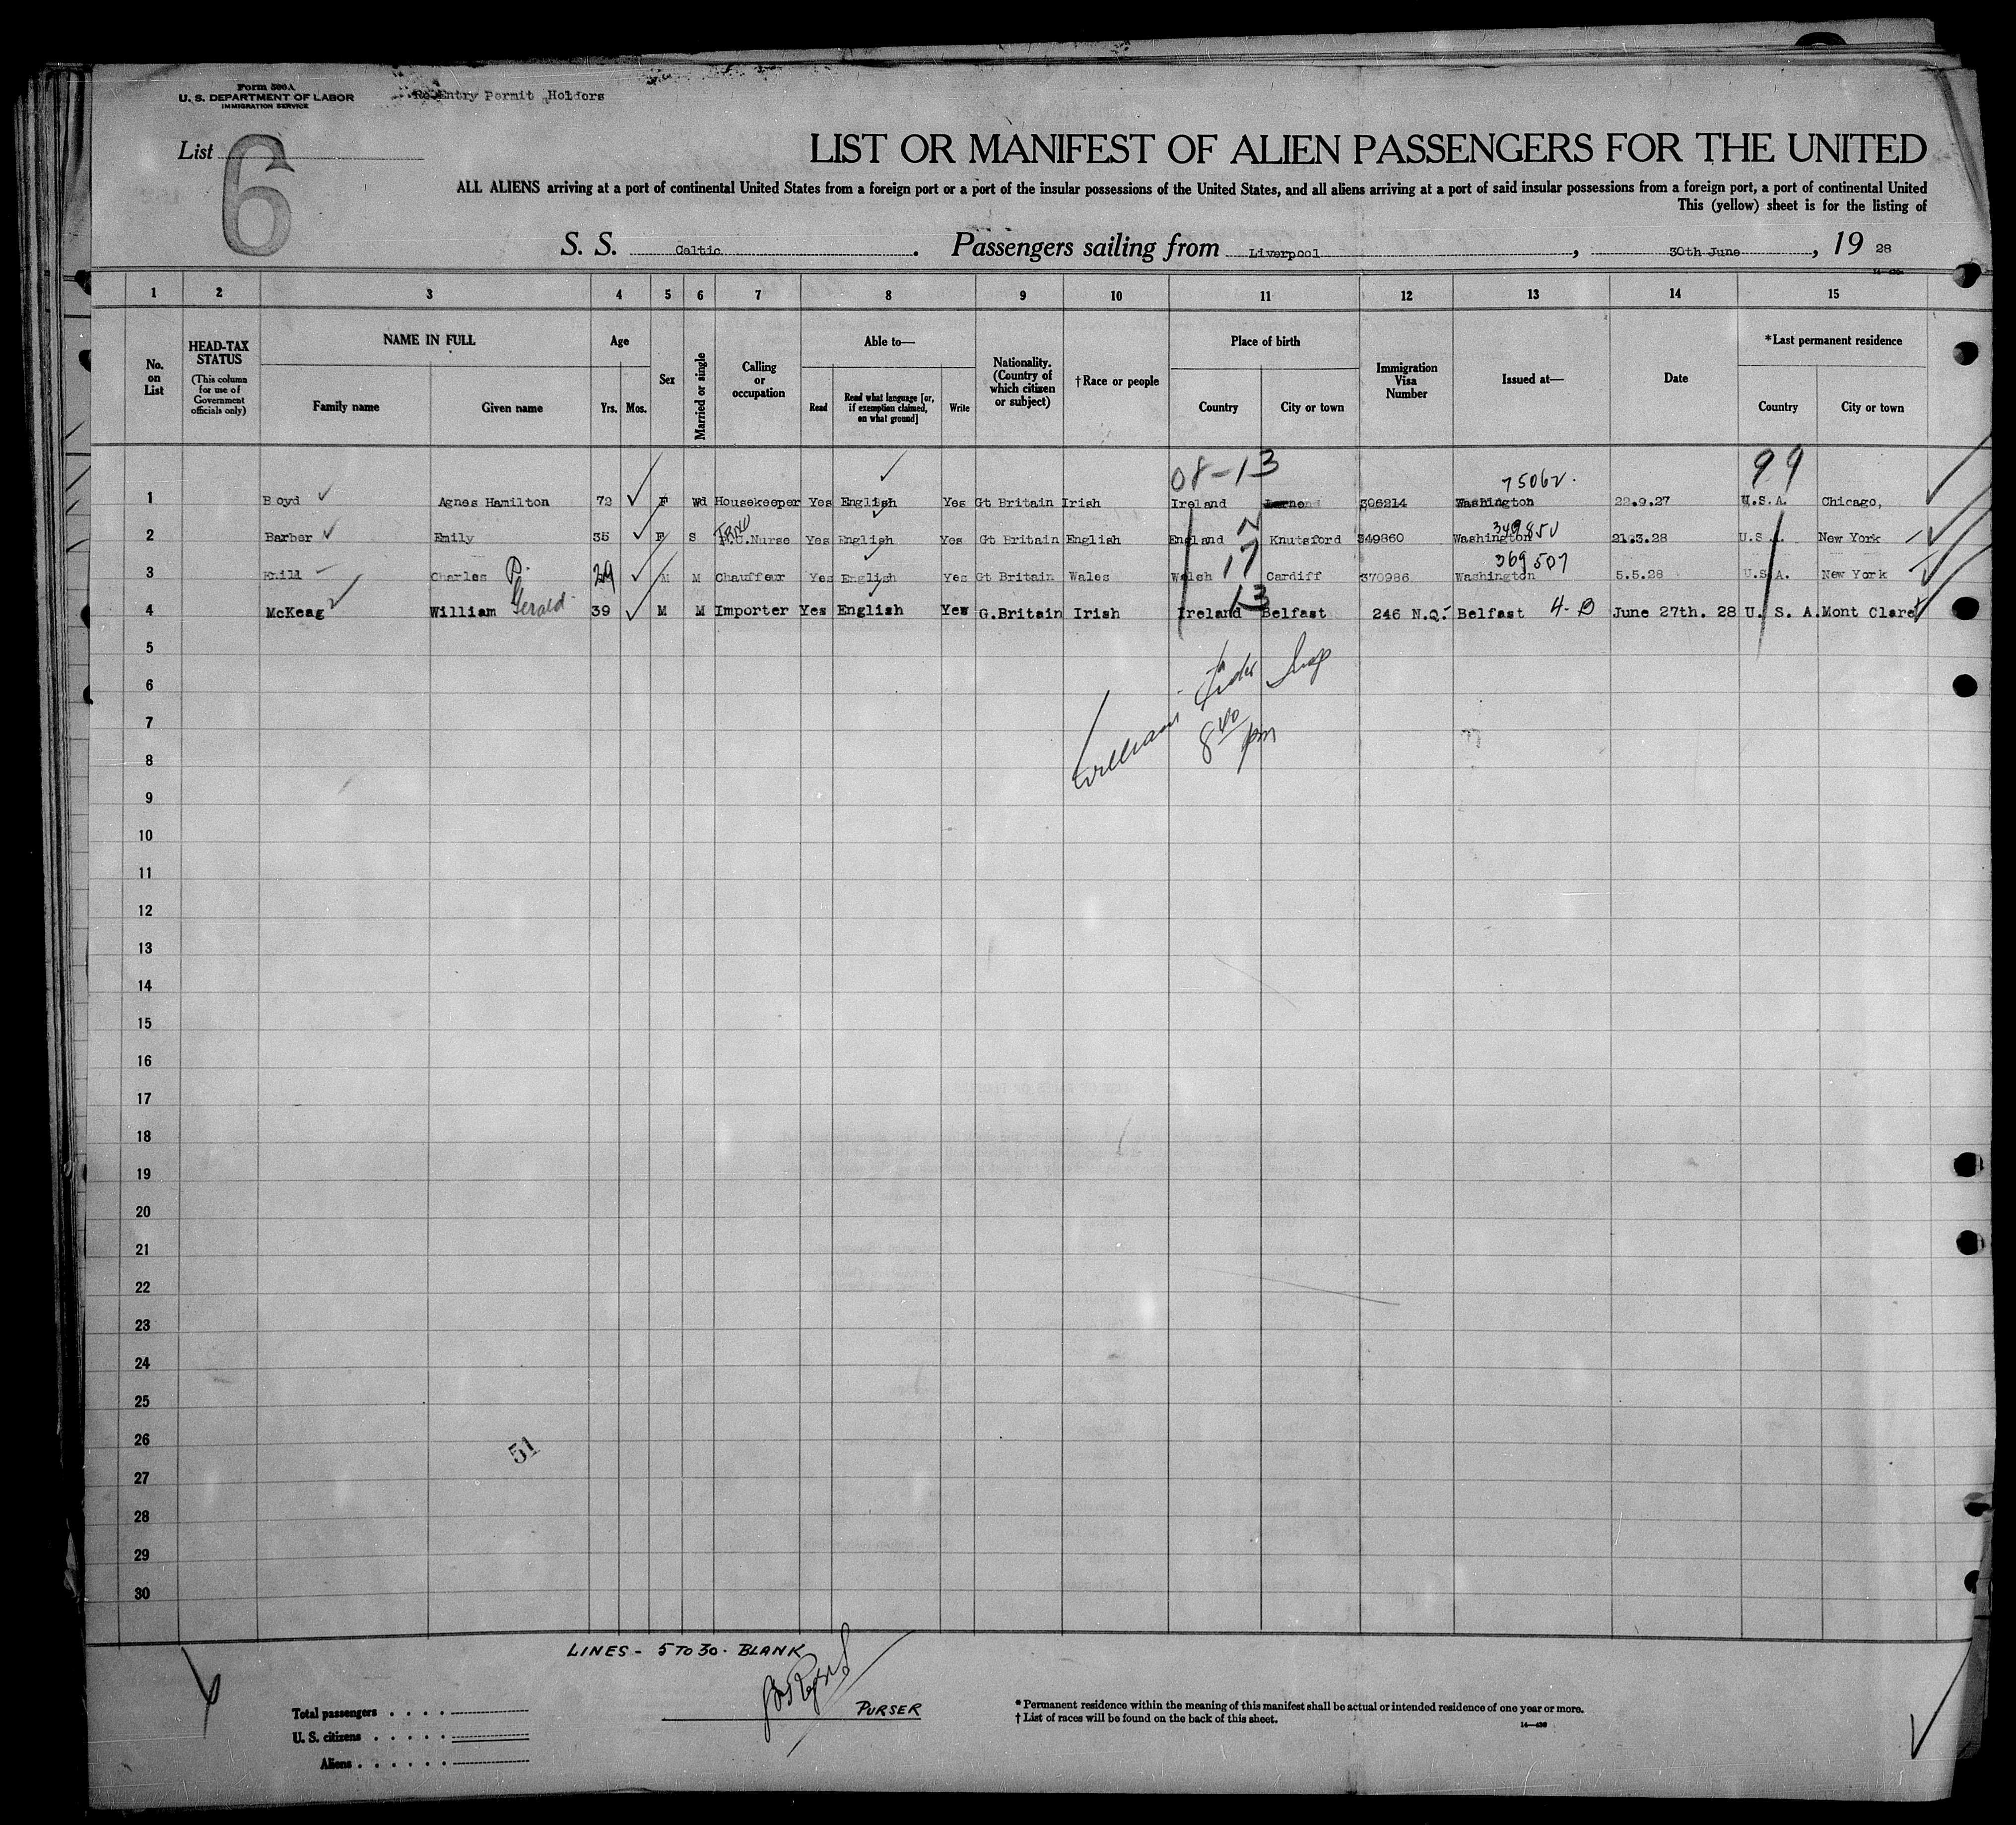 Form 500A
U. S. DEPARTMENT OF LABOR
IMMIGRATION SERVICE
Re Entry Permit Holders
List 6
LIST OR MANIFEST OF ALIEN PASSENGERS FOR THE UNITED
ALL ALIENS arriving at a port of continental United States from a foreign port or a port of the insular possessions of the United States, and all aliens arriving at a port of said insular possessions from a foreign port, a port of continental United
This (yellow) sheet is for the listing of
S. S. Celtic. Passengers sailing from Liverpool, 30th June, 19 28
1 2 3 4 5 6 7 8 9 10 11 12 13 14 15
No. on List
HEAD-TAX STATUS
(This column for use of Government officials only)
NAME IN FULL
Family name Given name
Age
Yrs. Mos.
Sex
Married or single
Calling or occupation
Able to—
Read Read what language [or, if exemption claimed, on what ground] Write
Nationality. (Country of which citizen or subject)
†Race or people
Place of birth
Country City or town
Immigration Visa Number
Issued at—
Date
*Last permanent residence
Country City or town
08-13 75062. 99
1 Boyd Agnes Hamilton 72 F Wd Housekeeper Yes English Yes Gt Britain Irish Ireland 306214 Washington 22.9.27 U.S.A. Chicago,
349850
2 Barber Emily 35 F S Nurse Yes English Yes Gt Britain English England Knutsford 349860 Washington 21.3.28 U.S.A. New York
17 369507
3 Charles P. 29 M M Chauffeur Yes English Yes Gt Britain Wales Welsh Cardiff 370986 Washington 5.5.28 U.S.A. New York
13
4 McKeag William Gerald 39 M M Importer Yes English Yes G.Britain Irish Ireland Belfast 246 N.Q. Belfast 4-B June 27th. 28 U. S. A. Mont Clare
5
6
7
William
8 40 pm
8
9
10
11
12
13
14
15
16
17
18
19
20
21
22
23
24
25
26
51
27
28
29
30
LINES - 5 TO 30 - BLANK
PURSER
Total passengers . . . .
U. S. citizens . . . . .
Aliens . . . . . .
* Permanent residence within the meaning of this manifest shall be actual or intended residence of one year or more.
† List of races will be found on the back of this sheet.
14—430